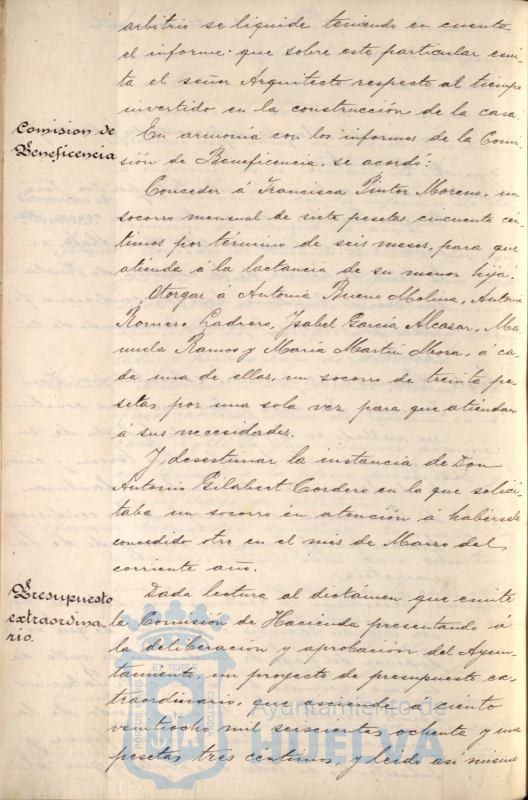 arbitrio se liquide teniendo en cuenta
el informe que sobre este particular emi-
ta el señor Arquitecto respecto al tiempo
invertido en la construcción de la casa.
Comision de
Beneficencia
En armonia con los informes de la Comi-
sión de Beneficencia, se acordó:
Conceder á Francisca Pintor Moreno, un
socorro mensual de siete pesetas, cincuenta cén-
timos por término de seis meses, para que
atienda á la lactancia de su menor hija.
Otorgar á Antonia Bueno Molina, Antonia
Romero Ladrero, Isabel García Alcazar, Ma-
nuela Ramos y María Martín Mora, á ca-
da una de ellas, un socorro de treinta pe-
setas por una sola vez para que atiendan
á sus necesidades.
Y, desestimar la instancia de Don
Antonio Gilabert Cordero en la que solici-
taba un socorro en atención á habérsele
concedido otro en el mes de Marzo del
corriente año.
Presupuesto
extraordina-
rio.
Dada lectura al dictámen que emite
la Comisión de Hacienda presentando á
la deliberación y aprobación del Ayun-
tamiento, un proyecto de presupuesto ex-
traordinario, que asciende a ciento
veintiocho mil seiscientas ochenta y una
pesetas tres centimos, y leido asi mismo
Ayuntamiento de
HUELVA